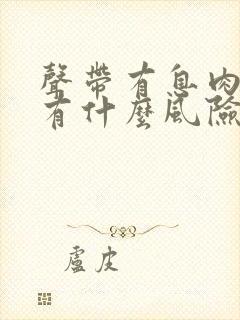 聲帶有息肉
有什麼風險
盧皮